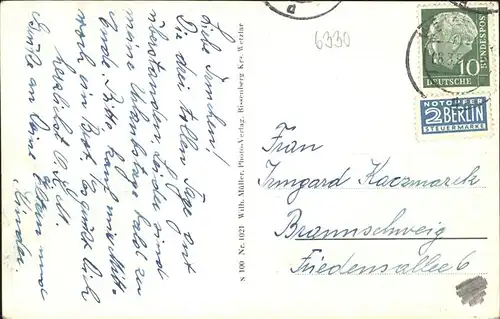 Liebe Irmchen!
Die drei tollen Tage gut
überstanden, leider sind
meine Urlaubstage bald zu
Ende. Bitte kauf mir Mitt-
woch ein Brot. Es grüßt Dich
herzlichst
Grüße an Deine Eltern und
Kinder.
S 100 Nr. 1021 Wilh. Müller, Photo-Verlag, Bissenberg Krs. Wetzlar
6330
DEUTSCHE
BUNDESPOST
10
NOTOPFER
2 BERLIN
STEUERMARKE
Frau
Irmgard Kaczmarek
Braunschweig
Friedensallee 6